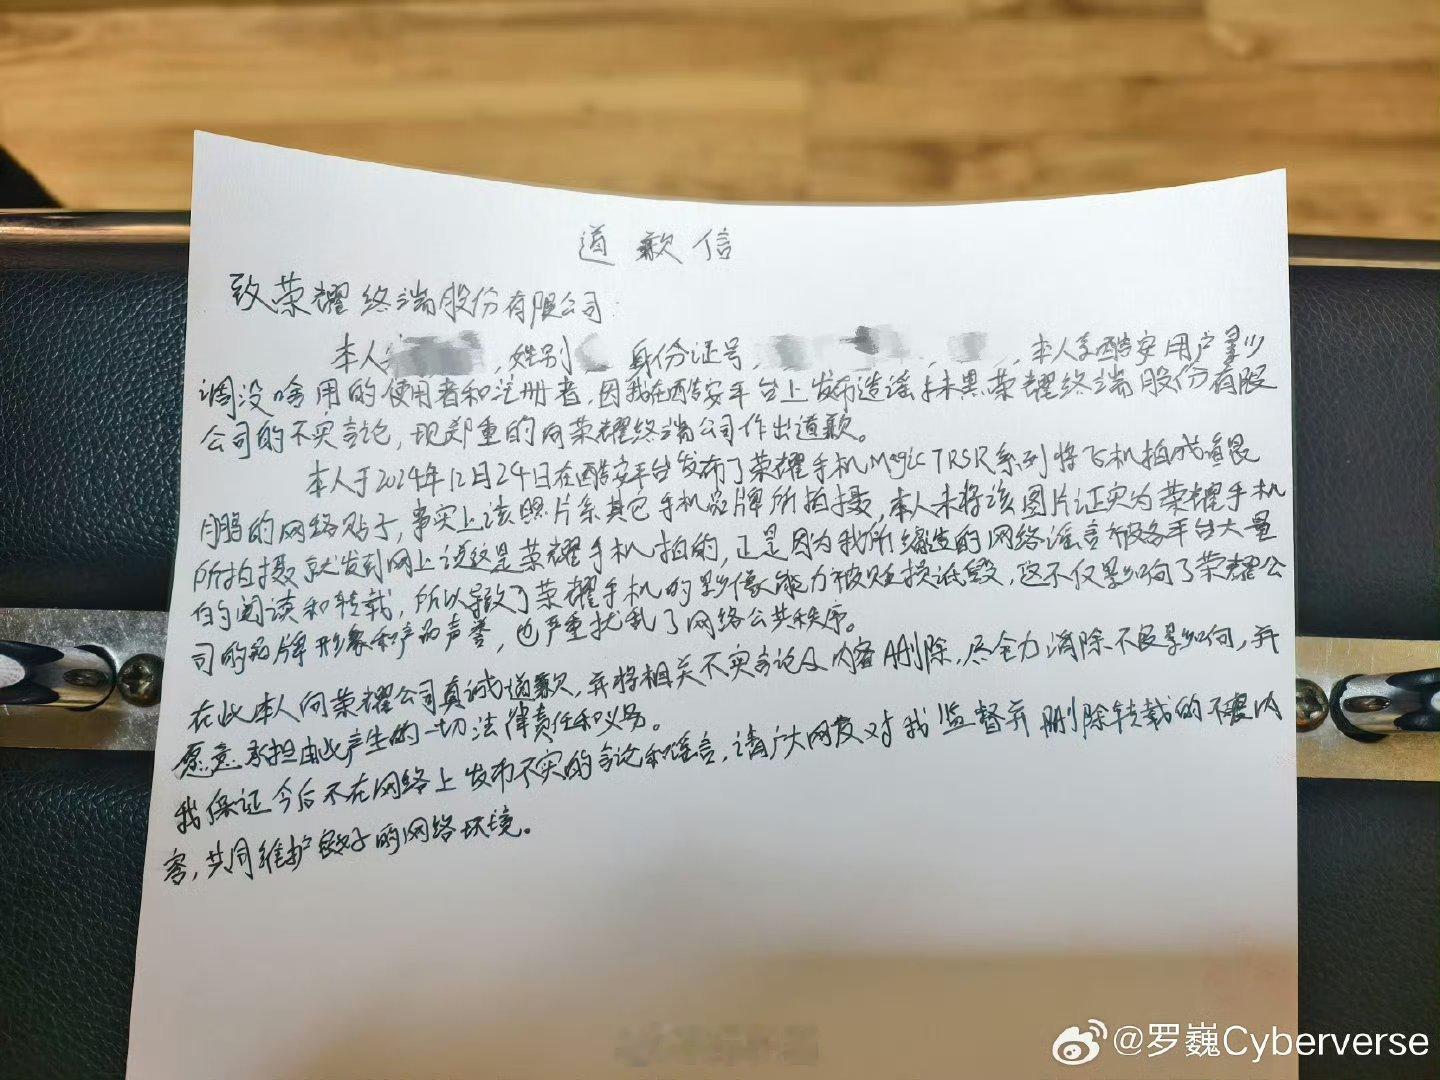 道歉信
致荣耀终端股份有限公司:
本人,姓别 身份证号,本人系酷安用户
调没啥用的使用者和注册者,因我在酷安平台上发布造谣抹黑荣耀终端股份有限
公司的不实言论,现郑重的向荣耀终端公司作出道歉。
本人于2024年12月24日在酷安平台发布了荣耀手机Magic7RSR系列将飞机拍成
的网络贴子,事实上该照片系其它手机品牌所拍摄,本人未将该图片证实为荣耀手机
所拍摄就发到网上说这是荣耀手机拍的,正是因为我所编造的网络谣言被各平台大量
的阅读和转载,所以导致了荣耀手机的影像能力被贬损诋毁,这不仅影响了荣耀公
司的品牌形象和产品声誉,也严重扰乱了网络公共秩序。
在此本人向荣耀公司真诚道歉,并将相关不实言论及内容删除,尽全力消除不良影响,并
愿意承担由此产生的一切法律责任和义务。
我保证今后不在网络上发布不实的言论和谣言,请广大网友对我监督并删除转载的不良内
容,共同维护良好的网络环境。
@罗巍Cyberverse